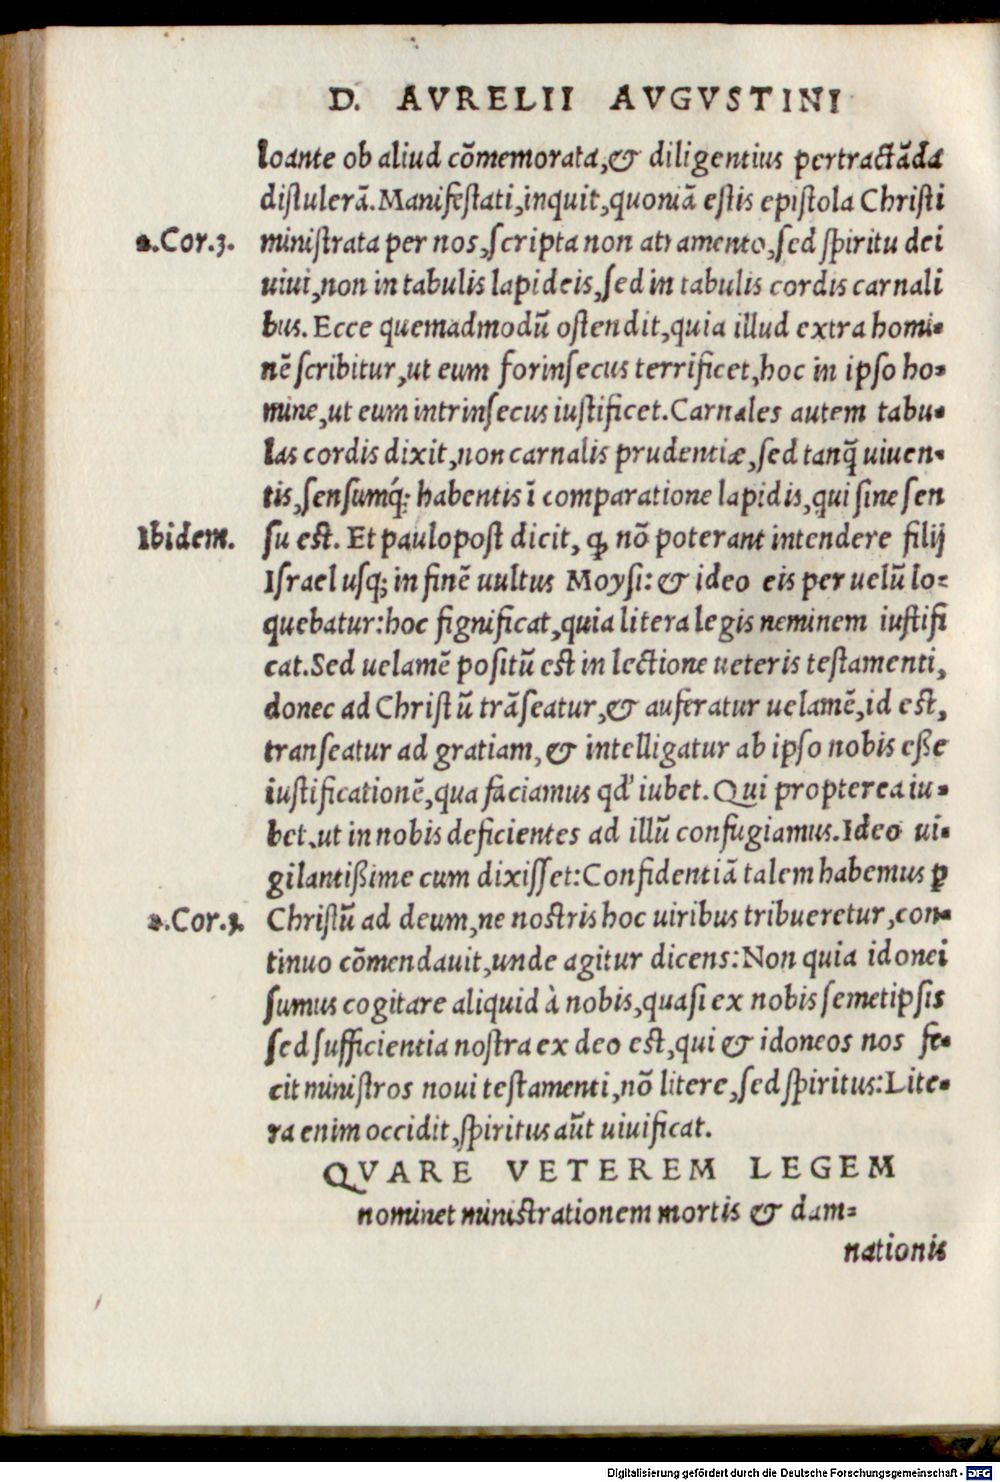 D. AVRELII AVGVSTINI
loante ob aliud cõmemorata,& diligentius pertractãda
distulerã.Manifestati,inquit,quoniã estis epistola Christi
2.Cor.3. ministrata per nos,scripta non atramento,sed spiritu dei
uiui,non in tabulis lapideis,sed in tabulis cordis carnali
bus.Ecce quemadmodũ ostendit,quia illud extra homi-
nẽ scribitur,ut eum forinsecus terrificet,hoc in ipso ho-
mine,ut eum intrinsecus iustificet.Carnales autem tabu-
las cordis dixit,non carnalis prudentiæ,sed tanq̃ uiuen-
tis,sensumq́; habentis ĩ comparatione lapidis,qui sine sen
Ibidem. su est. Et paulopost dicit, ꝙ nõ poterant intendere filij
Israel usq; in finẽ uultus Moysi:& ideo eis per uelũ lo-
quebatur:hoc significat,quia litera legis neminem iustifi
cat.Sed uelamẽ positũ est in lectione ueteris testamenti,
donec ad Christũ trãseatur,& auferatur uelamẽ,id est,
transeatur ad gratiam,& intelligatur ab ipso nobis eße
iustificationẽ,qua faciamus qd' iubet.Qui propterea iu-
bet,ut in nobis deficientes ad illũ confugiamus.Ideo ui-
gilantißime cum dixisset:Confidentiã talem habemus ꝑ
2.Cor.3. Christũ ad deum,ne nostris hoc uiribus tribueretur,con-
tinuo cõmendauit,unde agitur dicens:Non quia idonei
sumus cogitare aliquid à nobis,quasi ex nobis semetipsis
sed sufficientia nostra ex deo est,qui & idoneos nos fe-
cit ministros noui testamenti,nõ litere,sed spiritus:Lite-
ra enim occidit,spiritus aũt uiuificat.
QVARE VETEREM LEGEM
nominet ministrationem mortis & dam-
nationis
Digitalisierung gefördert durch die Deutsche Forschungsgemeinschaft - DFG